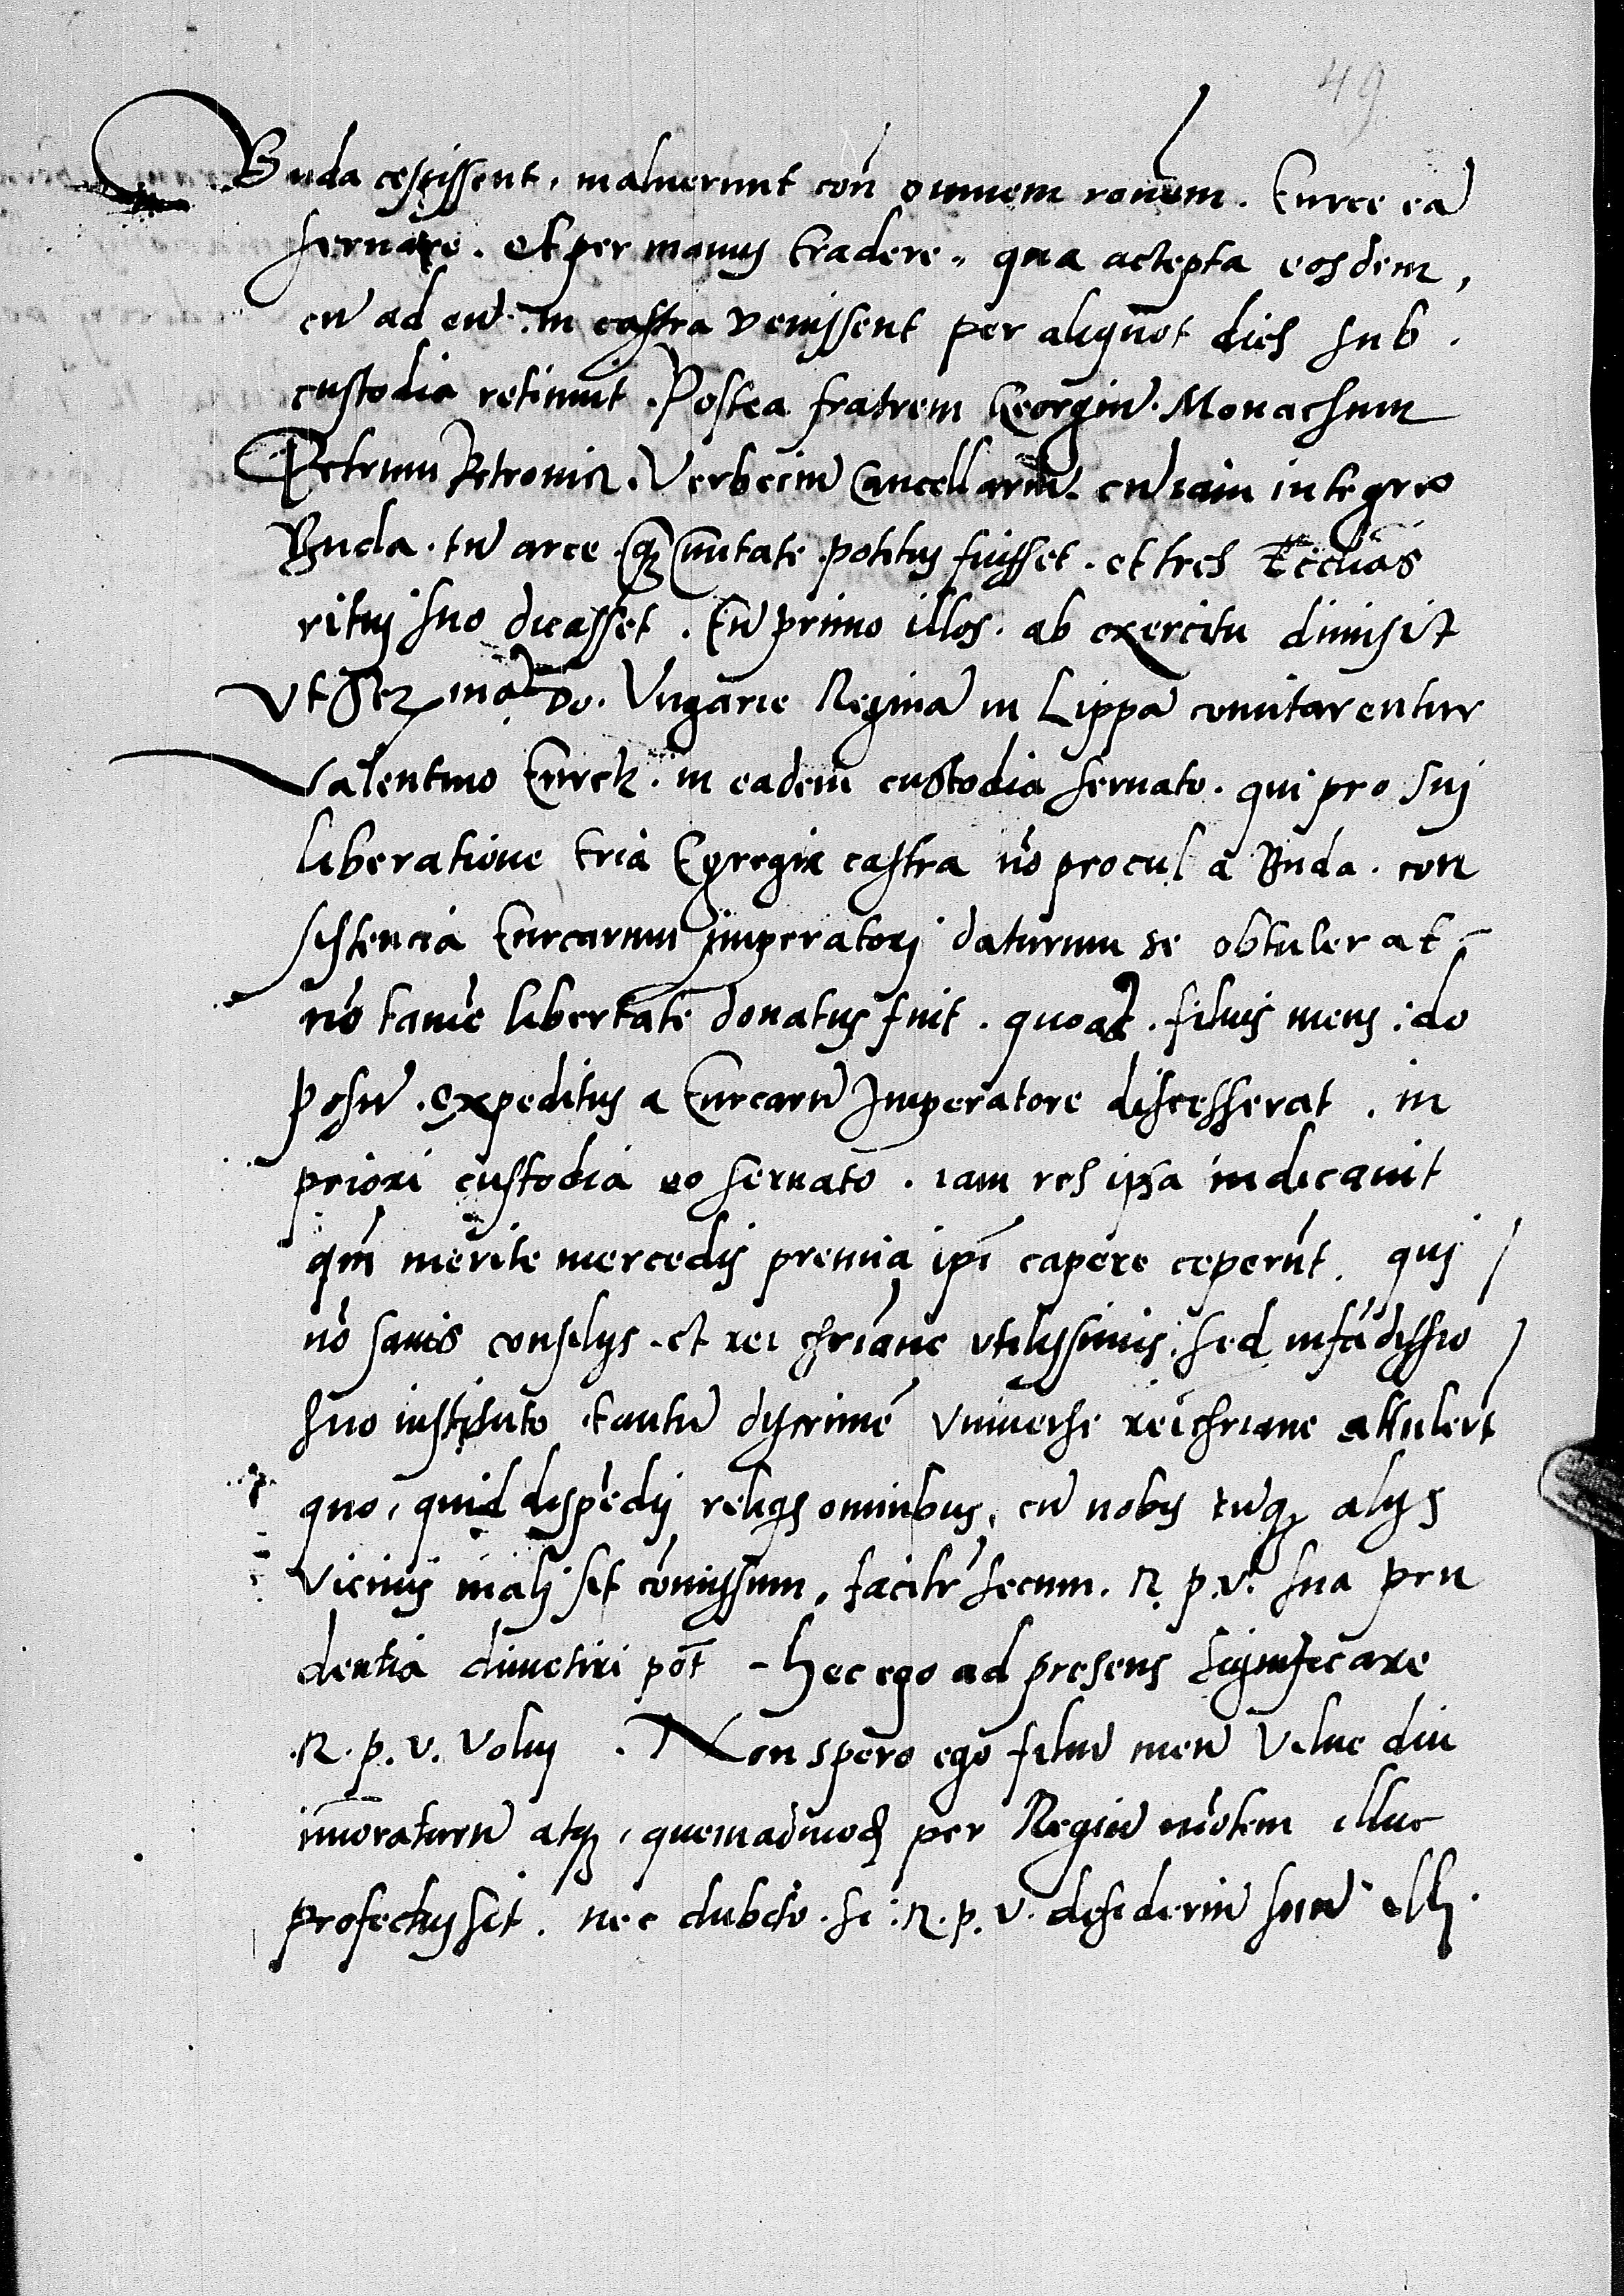 49
Buda cessissent, maluerunt con̄ omnem ronem. Turce eā
seruare. et per manus tradere. qua accepta eosdem,
cū ad eū in castra venissent per aliquot dies sub
custodia retinuit. Postea fratrem Georgiū. Monachum
Petrum Petronicz. Verbeciū Cancellariū. cū iam integro
Buda. tū arce qꝫ ciuitate potitus fuisset. et tres Ecclīas
ritui suo dicasset. Tū primo illos. ab exercitu dimisit
Vt do. Vngarie Reginā in Lippā comitarentur
Valentino Turck. in eadem custodia seruato. qui pro sui
liberatione tria Egregia castra nō procul a Buda. con
sistencia Turcarum imperatori daturum se obtulerat
nō tamē libertate donatus fuit. quoad. filius meus: do
posū. expeditus a Turcarū Imperatore discesserat. in
priori custodia eo seruato. iam res ipsa indicauit
qm̄ merite mercedis premia ipī capere ceperūt. qui
nō sanis consilijs. et rei chrīane vtilissimis. sed infādissīo
suo instituto tantū discrimē vniuerse rei chriane attulerūt
quo, quid dispēdij reliqis omnibus, cū nobis tūqꝫ alijs
vicinis mali sit cōmissum, facilr̄ secum. R. p. v. sua pru
dentia dimetiri pōt - Hec ego ad presens significare
R. p. v. volui. Non spero ego filiū meū Viluc diu
īmoraturū atqꝫ, quemadmodū per Regiū nūotem illuc
profectus sit. nec dubito. si: R. p. v. desideriū suū illi